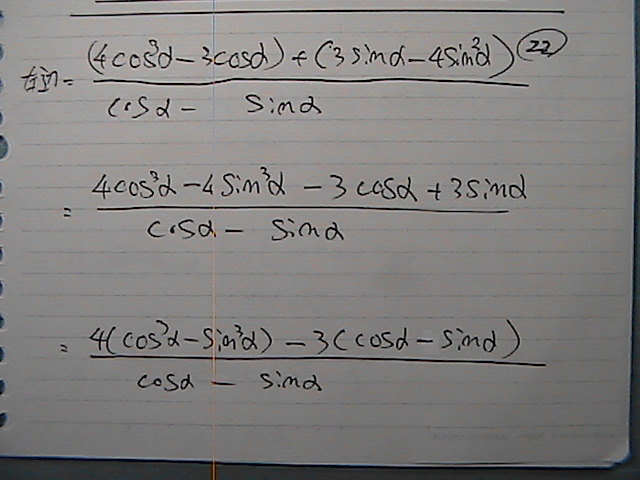 右边= (4cos³α-3cosα)+(3sinα-4sin³α) (22)
cosα- sinα
= 4cos³α-4sin³α-3cosα+3sinα
cosα- sinα
= 4(cos³α-sin³α)-3(cosα-sinα)
cosα- sinα